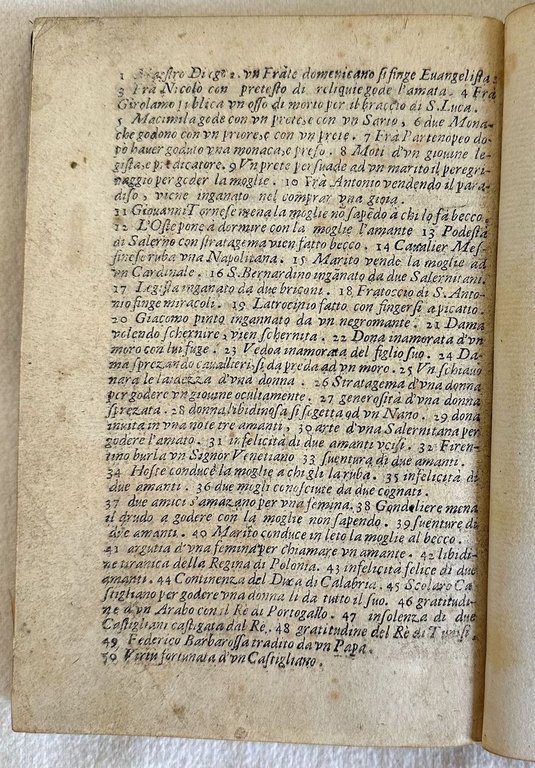 1 Maestro Diego 2. vn Frate domenicano si finge Euangelista
3 Frà Nicolo con pretesto di reliquie gode l'amata. 4 Frà
Girolamo publica vn osso di morto per il braccio di S. Luca.
5 Macimila gode con vn prete, e con vn Sarto, 6 due Mona-
che godono con vn priore, e con vn prete. 7 Frà Partenopeo do-
pò hauer goduto vna monaca, e preso. 8 Moti d'vn giouine le-
gista, e predicatore. 9 Vn prete persuade ad vn marito il peregri-
naggio per goder la moglie. 10 Frà Antonio vendendo il para-
diso, viene inganato nel comprar vna gioia.
11 Giouanni Tornese mena la moglie nō sapēdo à chi lo fà becco.
12 L'Oste pone a dormire con la moglie l'amante 13 Podestà
di Salerno con stratagema vien fatto becco. 14 Caualier Mes-
sinese ruba vna Napolitana. 15 Marito vende la moglie ad
vn Cardinale. 16 S. Bernardino ingānato da due Salernitani.
17 Legista inganato da due briconi. 18 Fratoccio di S. Anto-
nio finge miracoli. 19 Latrocinio fatto con fingersi apicatio.
20 Giacomo pinto ingannato da vn negromante. 21 Dama
volendo schernire, vien schernita. 22 Dona inamorata d'vn
moro con lui fuge. 23 Vedoa inamorata del figlio suo. 24 Da-
ma sprezando cauallieri si dà preda ad vn moro. 25 Vn schiauo
narra le laidezza d'vna donna. 26 Stratagema d'vna donna
per godere vn giouine ocultamente. 27 generosità d'vna donna
sprezata. 28 donna libidinosa si sogetta ad vn Nano. 29 dona
inuita in vna note tre amanti, 30 arte d'vna Salernitana per
godere l'amato. 31 infelicità di due amanti vcisi. 32 Firen-
tino burla vn Signor Venetiano 33 suentura di due amanti.
34 Hoste conduce la moglie a chi gli la ruba. 35 infelicità di
due amanti. 36 due mogli conosciute da due cognati.
37 due amici s'amazano per vna femina. 38 Gondeliere mena
il drudo a godere con la moglie non sapendo. 39 suenture di
due amanti. 40 Marito conduce in leto la moglie al becco.
41 argutia d'vna femina per chiamare vn amante. 42 libidi-
ne tiranica della Regina di Polonia. 43 infelicità felice di due
amanti. 44 Continenza del Duca di Calabria. 45 Scolaro Ca-
stigliano per godere vna donna li dà tutto il suo. 46 gratitudi-
ne d'vn Arabo con il Rè di Portogallo. 47 insolenza di due
Castigliani castigata dal Rè. 48 gratitudine del Rè di Tunisi.
49 Federico Barbarossa tradito da vn Papa.
50 Virtù fortunata d'vn Castigliano.